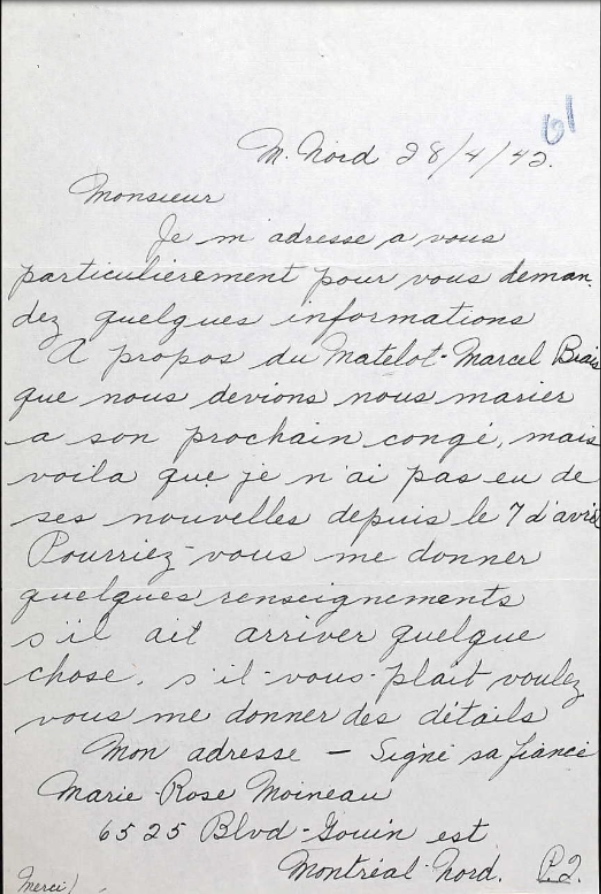 61
M. Nord 28/4/42.
Monsieur
Je m'adresse a vous
particulièrement pour vous deman
dez quelques informations
A propos du Matelot-Marcel Biais
que nous devions nous marier
a son prochain congé, mais
voila que je n'ai pas eu de
ses nouvelles depuis le 7 d'avril
Pourriez-vous me donner
quelques renseignements
s'il ait arriver quelque
chose, s'il-vous-plait voulez
vous me donner des détails
Mon adresse — Signé sa fiancé
Marie-Rose Moineau
6525 Blvd-Gouin est
Montréal-Nord. P.Q.
Merci!